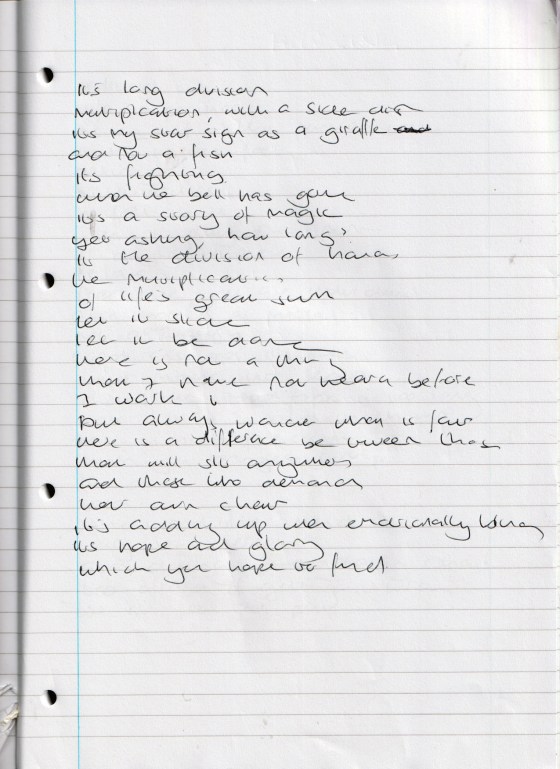 its long division
multiplication, with a side dish
its my star sign as a giraffe and
and not a fish
its fighting
when the bell has gone
its a story of magic
yet asking, how long?
is the division of
the multiplication
of life's great sum
let it slide
let it be done
there is not a thing
that I have not heard before
I want it
But always wonder what is fair
there is a difference between those
that will sit anywhere
and those who demand
their own chair
it's adding up when emotionally
its hope and glory
which you hope to find